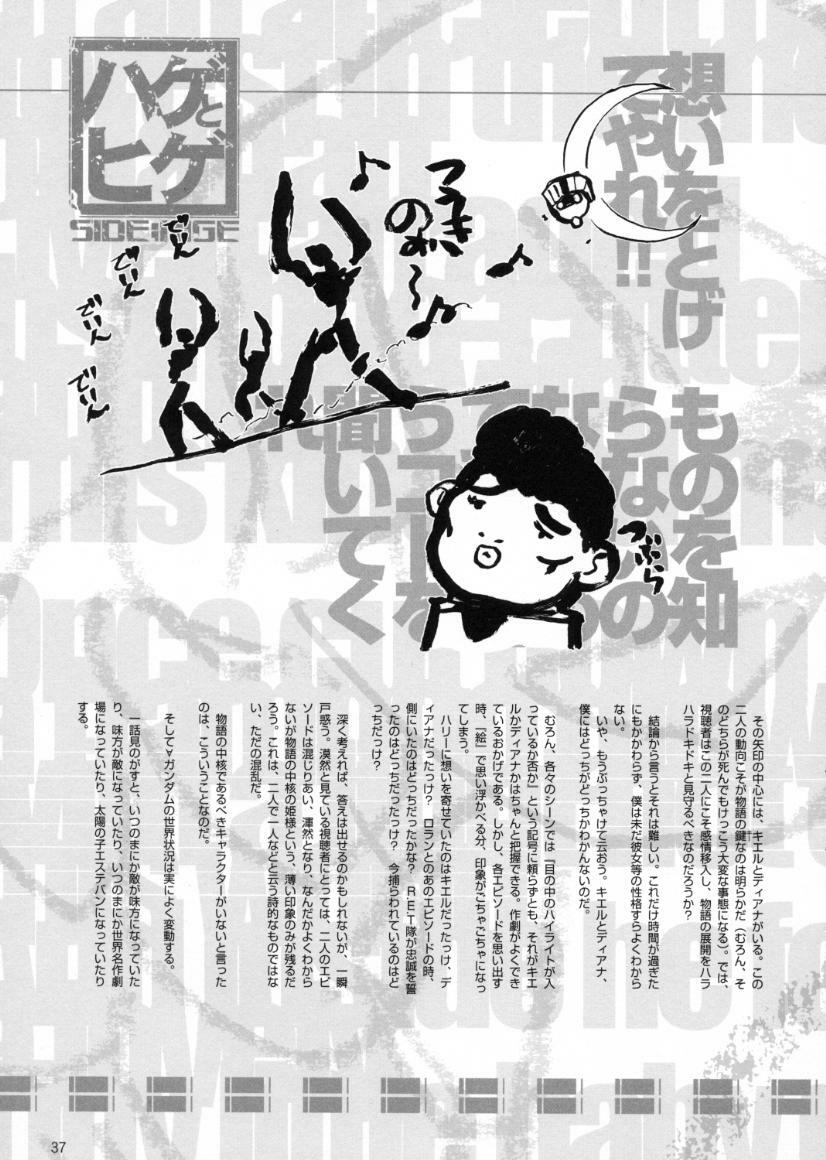 ハゲと
ヒゲ
SIDE:HGE
想いをとげ
てやれ!!
つきの
のね〜
でいん
でいん
でいん
でいん
ものを知
らない
聞いてく
れ
つぶら
その矢印の中心には、キエルとディアナがいる。この
二人の動向こそが物語の鍵なのは明らかだ(むろん、そ
のどちらが死んでもけっこう大変な事態になる)。では、
視聴者はこの二人にこそ感情移入し、物語の展開をハラ
ハラドキドキと見守るべきなのだろうか?
結論から言うとそれは難しい。これだけ時間が過ぎた
にもかかわらず、僕は未だ彼女等の性格すらよくわから
ない。
いや、もうぶっちゃけて云おう。キエルとディアナ、
僕にはどっちがどっちかわかんないのだ。
むろん、各々のシーンでは「目の中のハイライトが入
っているか否か」という記号に頼らずとも、それがキエ
ルかディアナかはちゃんと把握できる。作劇がよくでき
ているおかげである。しかし、各エピソードを思い出す
時、「絵」で思い浮かべる分、印象がごちゃごちゃになっ
てしまう。
ハリーに想いを寄せていたのはキエルだったっけ、デ
ィアナだったっけ? ロランとのあのエピソードの時、
側にいたのはどっちだったかな? RET隊が忠誠を誓
ったのはどっちだったっけ? 今捕らわれているのはど
っちだっけ?
深く考えれば、答えは出せるのかもしれないが、一瞬
戸惑う。漠然と見ている視聴者にとっては、二人のエピ
ソードは混じりあい、渾然となり、なんだかよくわから
ないが物語の中核の姫様という、薄い印象のみが残るだ
ろう。これは、二人で一人などと云う詩的なものではな
い、ただの混乱だ。
物語の中核であるべきキャラクターがいないと言った
のは、こういうことなのだ。
そして∀ガンダムの世界状況は実によく変動する。
一話見のがすと、いつのまにか敵が味方になっていた
り、味方が敵になっていたり、いつのまにか世界名作劇
場になっていたり、太陽の子エステバンになっていたり
する。
37